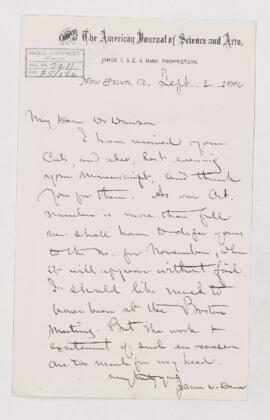 The American Journal of Science and Arts.
JAMES D. & E. S. DANA PROPRIETORS.
McGILL UNIVERSITY
ARCHIVES
ACC. NO. 2211
New Haven, Ct., Sept. 2 1880
My Dear Dr Dawson
I have received your
Cuts, and also, last evening
your Manuscript, and thank
you for them. As our Oct.
number is more than full
we shall have to defer yours
to the no. for November, when
it will appear without fail.
I should like much to
have been at the Boston
Meeting. But the work &
excitement of such an occasion
are too much for my head.
very truly yrs
James D. Dana